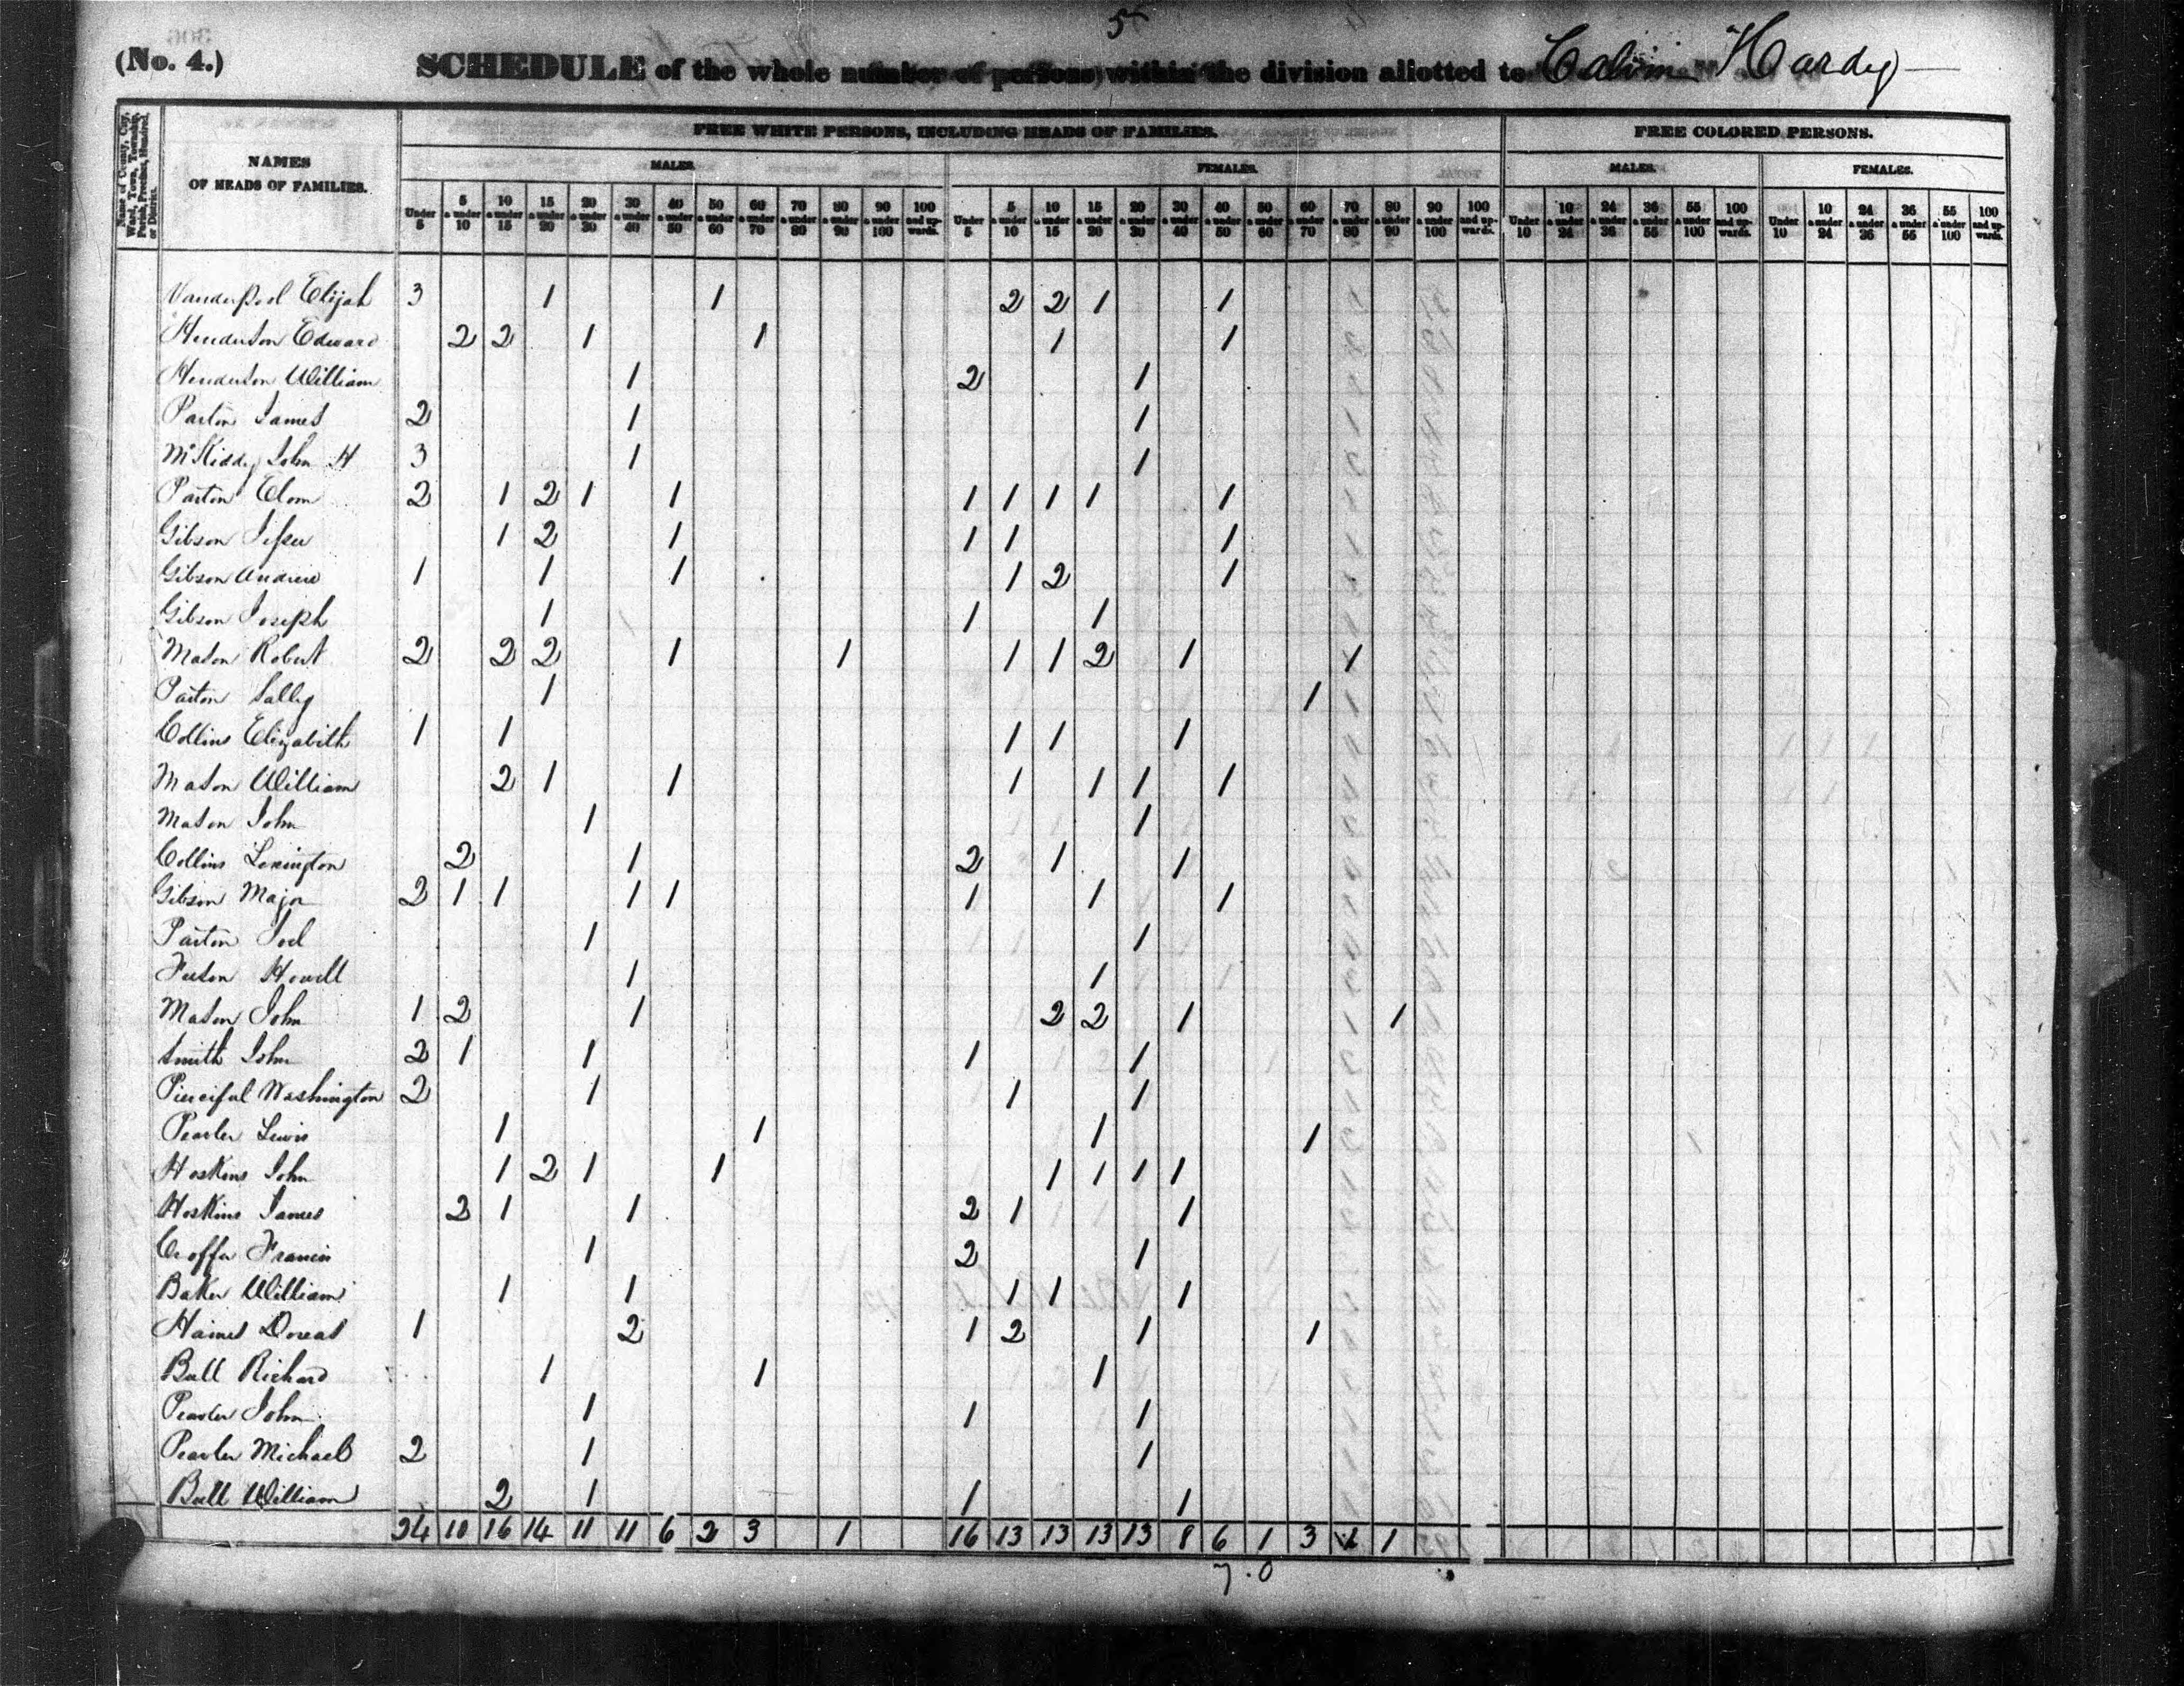 5
(No. 4.) SCHEDULE of the whole number of persons within the division allotted to Calvin Hardy
Name of County, City, Ward, Town, Township, Parish, Precinct, Hundred, or District.
NAMES OF HEADS OF FAMILIES.
FREE WHITE PERSONS, INCLUDING HEADS OF FAMILIES. FREE COLORED PERSONS.
MALES. FEMALES. MALES. FEMALES.
Under 5 | 5 & under 10 | 10 & under 15 | 15 & under 20 | 20 & under 30 | 30 & under 40 | 40 & under 50 | 50 & under 60 | 60 & under 70 | 70 & under 80 | 80 & under 90 | 90 & under 100 | 100 and upwards. | Under 5 | 5 & under 10 | 10 & under 15 | 15 & under 20 | 20 & under 30 | 30 & under 40 | 40 & under 50 | 50 & under 60 | 60 & under 70 | 70 & under 80 | 80 & under 90 | 90 & under 100 | 100 and upwards. | Under 10 | 10 & under 24 | 24 & under 36 | 36 & under 55 | 55 & under 100 | 100 and upwards. | Under 10 | 10 & under 24 | 24 & under 36 | 36 & under 55 | 55 & under 100 | 100 and upwards.
Vanderpool Elijah 3 1 1 2 2 1 1
Henderson Edward 2 2 1 1 1 1
Henderson William 1 2 1
Parton James 2 1 1
McKiddy John H 3 1 1
Parton Elom 2 1 2 1 1 1 1 1 1 1
Gibson Jesse 1 2 1 1 1 1
Gibson Andrew 1 1 1 1 2 1
Gibson Joseph 1 1 1
Mason Robert 2 2 2 1 1 1 1 2 1 1
Parton Sally 1 1
Collins Elizabeth 1 1 1 1 1
Mason William 2 1 1 1 1 1 1
Mason John 1 1
Collins Lexington 2 1 2 1 1
Gibson Major 2 1 1 1 1 1 1 1
Parton Joel 1 1
Fuson Howell 1 1
Mason John 1 2 1 2 2 1 1
Smith John 2 1 1 1 1
Pierciful Washington 2 1 1 1
Lewis 1 1 1 1
Hoskins John 1 2 1 1 1 1 1 1
Hoskins James 2 1 1 2 1 1
Francis 1 2 1
Baker William 1 1 1 1 1
Haines Dorcas 1 2 1 2 1 1
Bull Richard 1 1 1
John 1 1 1
Michael 2 1 1
Bull William 2 1 1 1
24 10 16 14 11 11 6 2 3 1 16 13 13 13 13 8 6 1 3 1 1
7 . 0